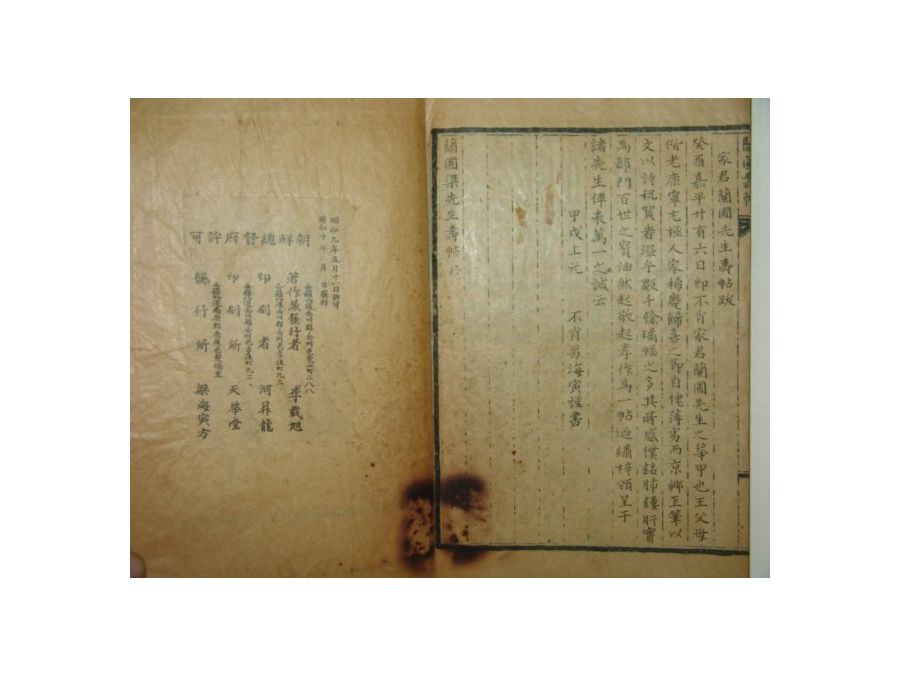 家君蘭圃先生壽帖跋
癸酉嘉平廿有六日卽不肖家君蘭圃先生之華甲也王父母
偕老康寧尤極人家稀慶歸喜之卽自愧薄劣而京鄉互筆以
文以詩祝賀者溢乎數千餘璠幅之多其所感僕銘肺鏤肝實
爲部門百世之寶油然起敬起孝作爲一帖廼繡梓頒呈于
諸先生俾表萬一之誠云
甲戌上元 不肖男海寅謹書
蘭圃梁先生壽帖 終
昭和九年五月十八日許可
昭和十年 月 日發行
朝鮮總督府許可
著作兼發行者 李載旭
印刷者 河昇龍
印刷所 天華堂
發行所 梁海寅方